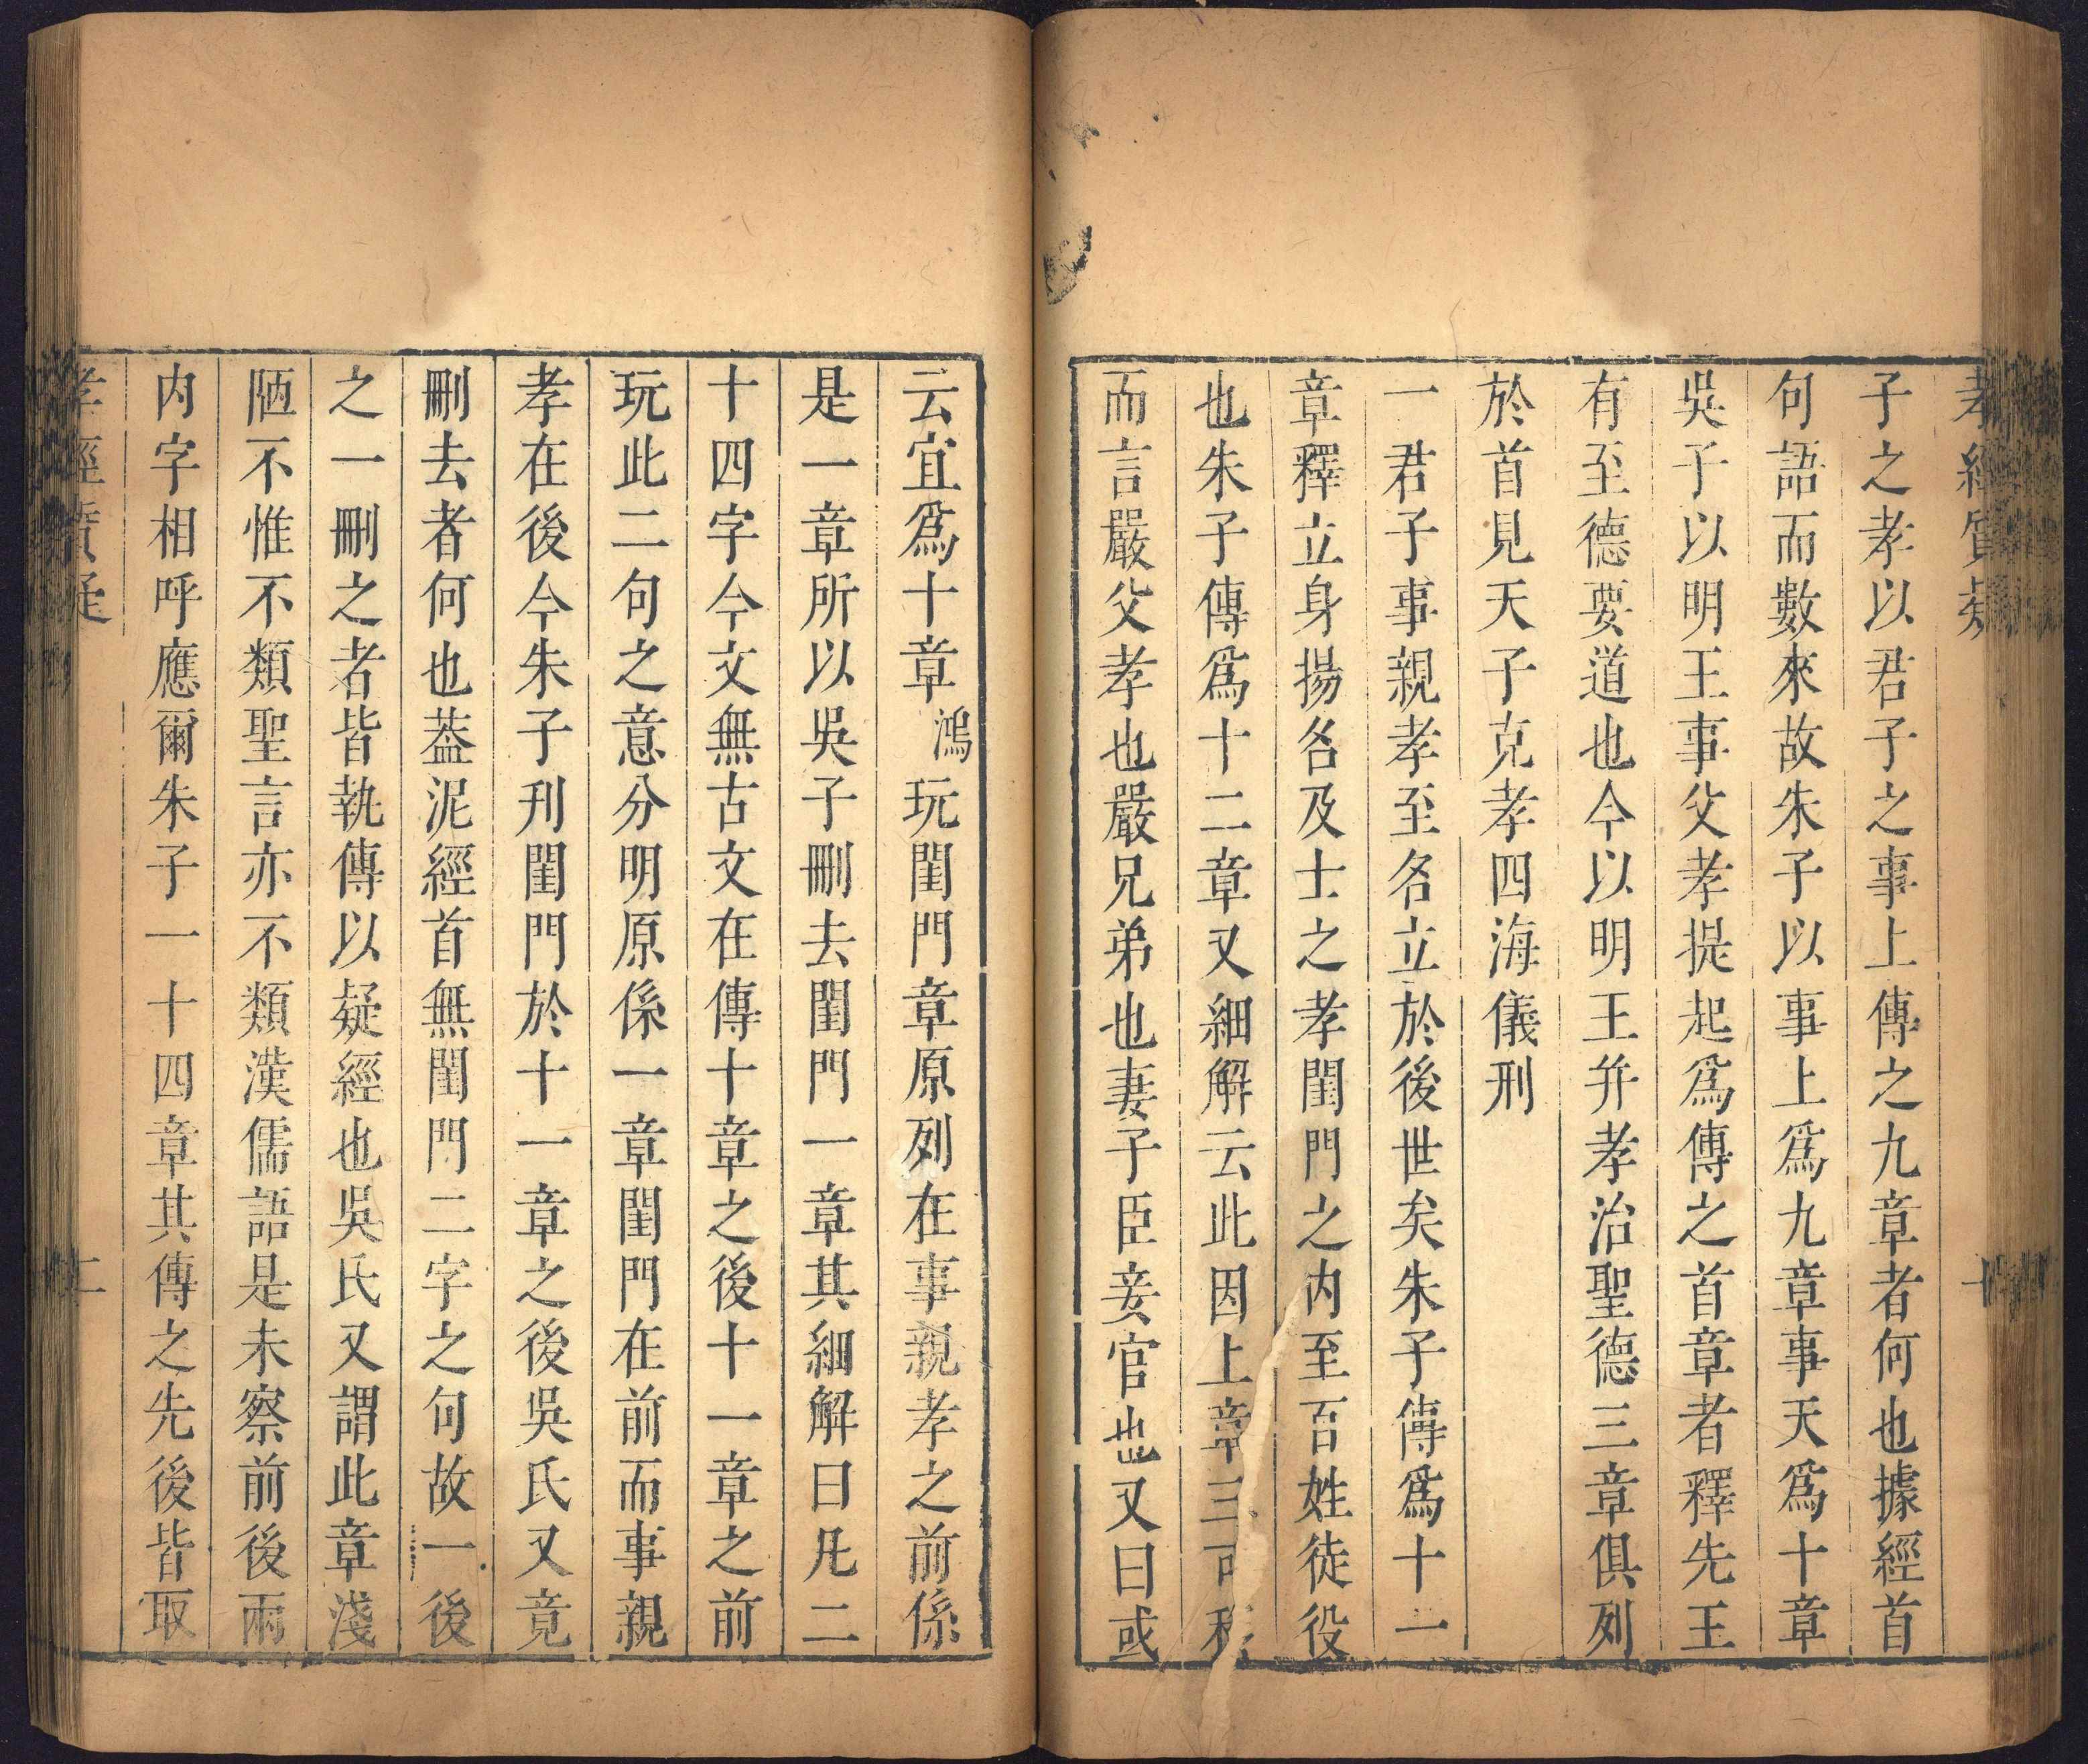 孝經質疑 十
子之孝以君子之事上傳之九章者何也據經首
句語而數來故朱子以事上爲九章事天爲十章
吳子以明王事父孝提起爲傳之首章者釋先王
有至德要道也今以明王并孝治聖德三章俱列
於首見天子克孝四海儀刑
一君子事親孝至名立於後世矣朱子傳爲十一
章釋立身揚名及士之孝閨門之內至百姓徒役
也朱子傳爲十二章又細解云此因上章三可移
而言嚴父孝也嚴兄弟也妻子臣妾官也又曰或
云宜爲十章鴻玩閨門章原列在事親孝之前係
是一章所以吳子刪去閨門一章其細解曰凡二
十四字今文無古文在傳十章之後十一章之前
玩此二句之意分明原係一章閨門在前而事親
孝在後今朱子刊閨門於十一章之後吳氏又竟
刪去者何也葢泥經首無閨門二字之句故一後
之一刪之者皆執傳以疑經也吳氏又謂此章淺
陋不惟不類聖言亦不類漢儒語是未察前後兩
内字相呼應爾朱子一十四章其傳之先後皆取
孝經質疑